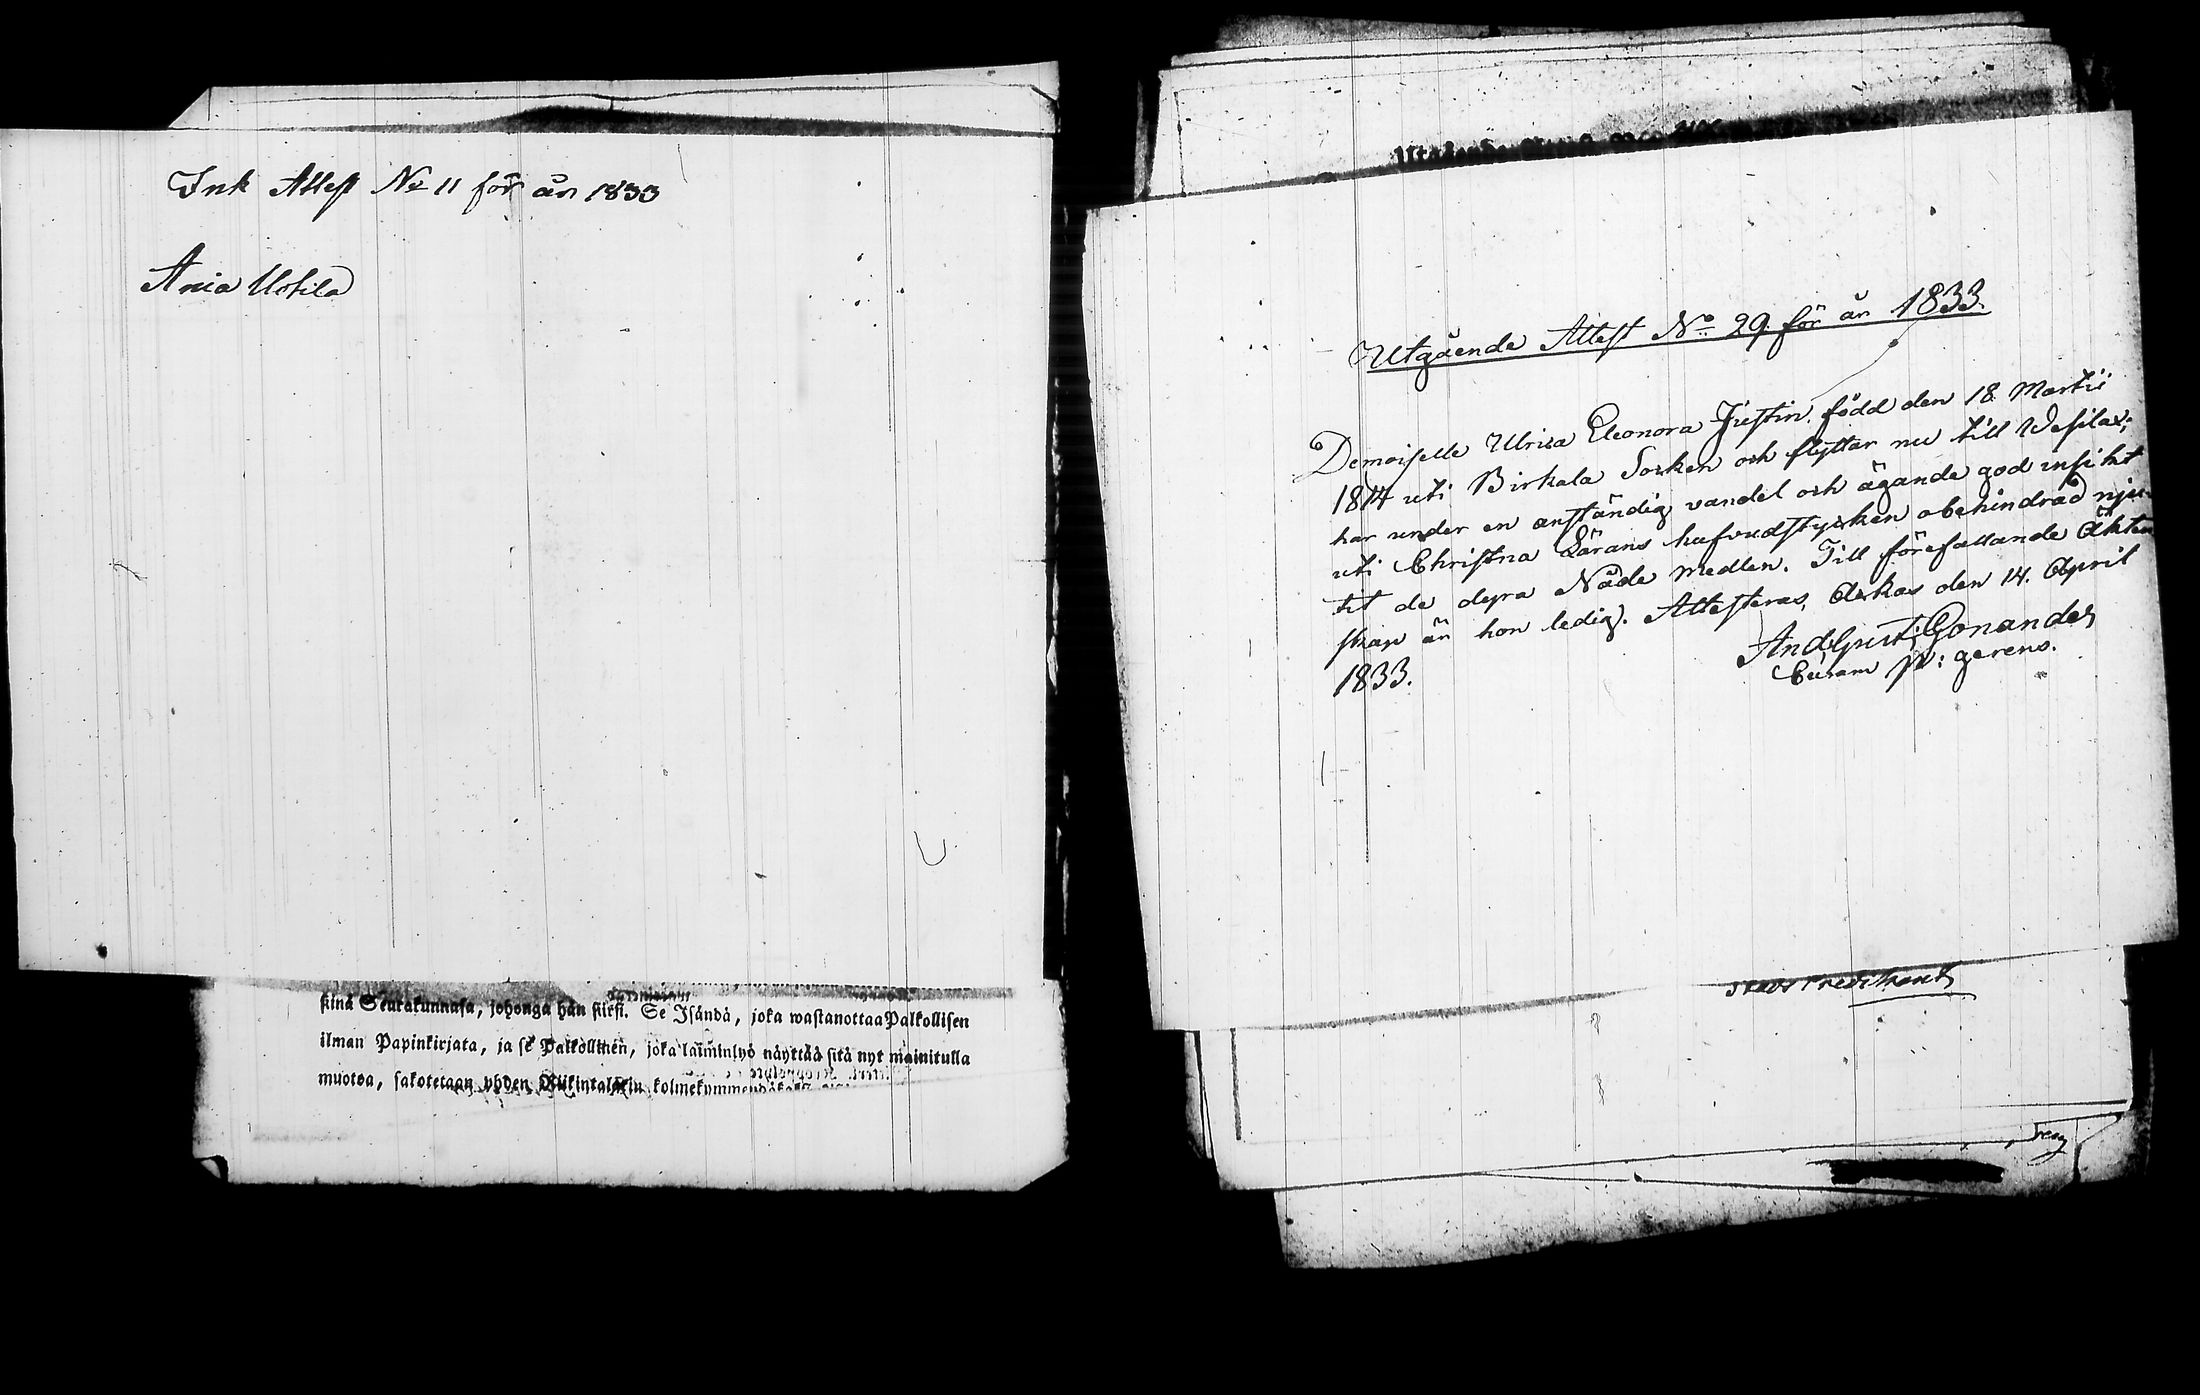 Ink Attest No 11 för år 1833
Ania Uotila
kinä Seurakunnasa, johonga hän siirsi. Se Isändä, joka wastanottaa Palkollisen
ilman Papinkirjata, ja se Palkollinen, joka laiminlyö näyttää sitä nyt mainitulla
muotoa, sakotetaan yhden Riikintalarin
Utgående Attest No 29 för år 1833.
Demoiselle Ulrica Eleonora Justin, född den 18 Martii
1814 uti Birkala Socken och flyttar nu till Wesilax;
har under en anständig vandel och ägande god insikt
uti Christna Lärans hufvudstycken obehindrad nju-
tit de dyra Nåde medlen. Till förefallande Äkten
skap är hon ledig. Attesteras, Ackas den 14. April
1833.
And Gust: Gonander
Curam p: gerens.